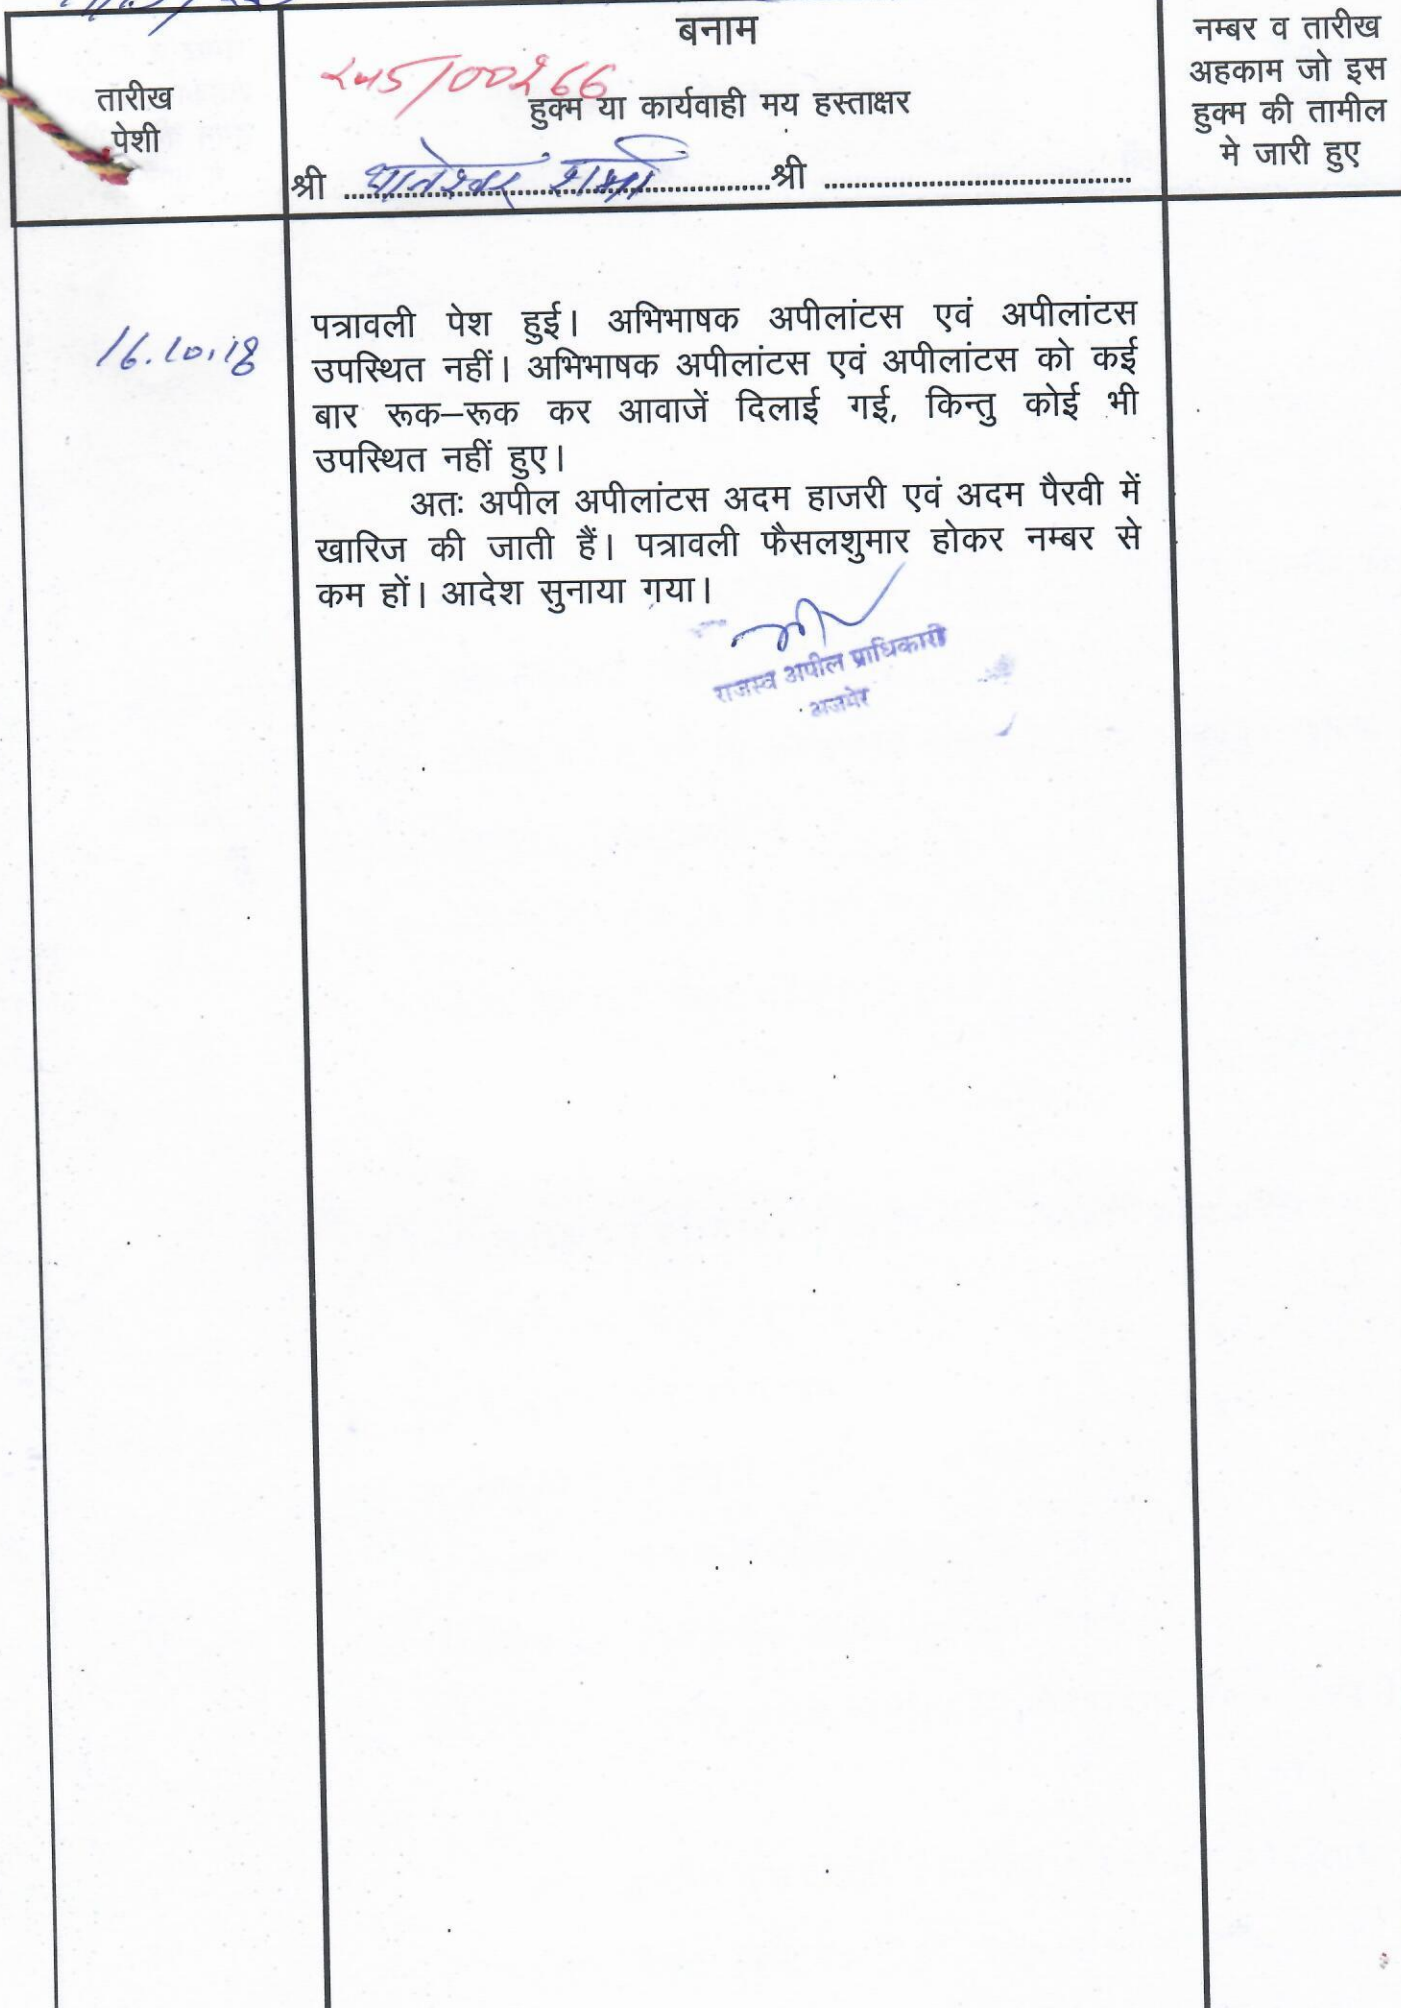 बनाम
तारीख
पेशी
हुक्म या कार्यवाही मय हस्ताक्षर
श्री .......... शर्मा ..........श्री ..........
नम्बर व तारीख
अहकाम जो इस
हुक्म की तामील
मे जारी हुए
16.10.18
पत्रावली पेश हुई। अभिभाषक अपीलांटस एवं अपीलांटस
उपस्थित नहीं। अभिभाषक अपीलांटस एवं अपीलांटस को कई
बार रूक–रूक कर आवाजें दिलाई गई, किन्तु कोई भी
उपस्थित नहीं हुए।
अतः अपील अपीलांटस अदम हाजरी एवं अदम पैरवी में
खारिज की जाती हैं। पत्रावली फैसलशुमार होकर नम्बर से
कम हों। आदेश सुनाया गया।
राजस्व अपील प्राधिकारी
अजमेर